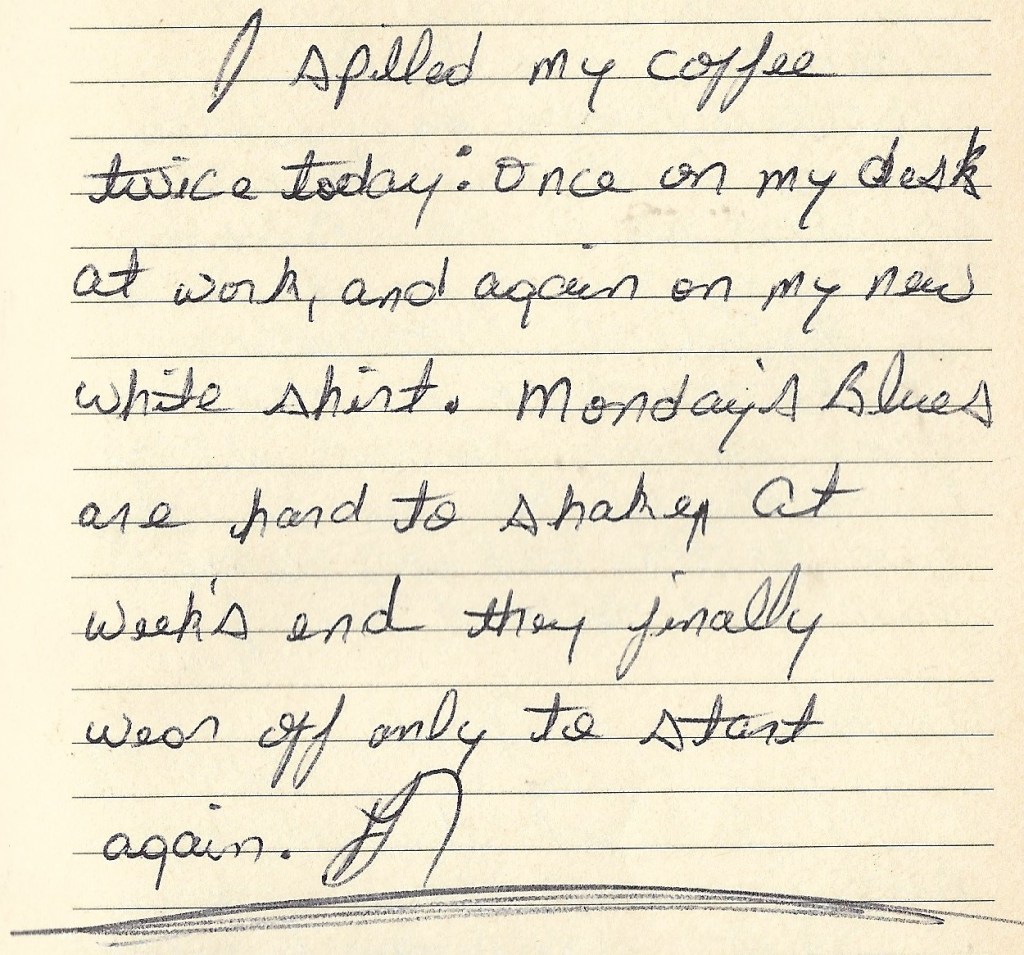 I spilled my coffee
twice today: Once on my desk
at work, and again on my new
white shirt. Monday's Blues
are hard to shake, At
week's end they finally
wear off only to start
again.